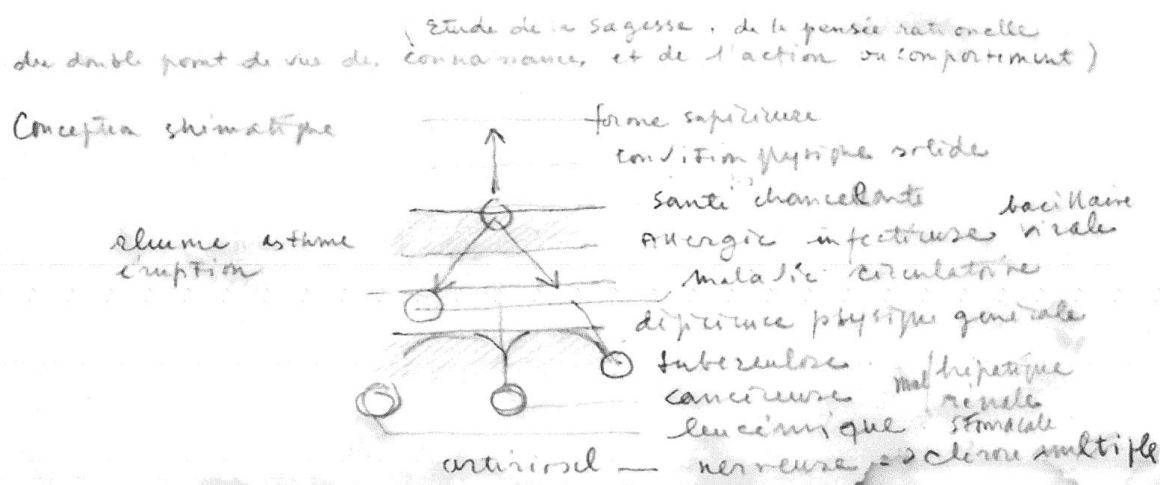 ( Etude de la sagesse, de la pensée rationelle
du double point de vue des connaissances et de l'action ou comportement )
Conception shimatique
forme supérieure
condition physique solide
santé chancelante bacillaire
rhume asthme Allergie infectieuse virale
éruption maladie circulatoire
déficience physique générale
tuberculose
cancéreuse mal hépatique
rénale
leucémique stomacale
artériosel — nerveuse = sclérose multiple